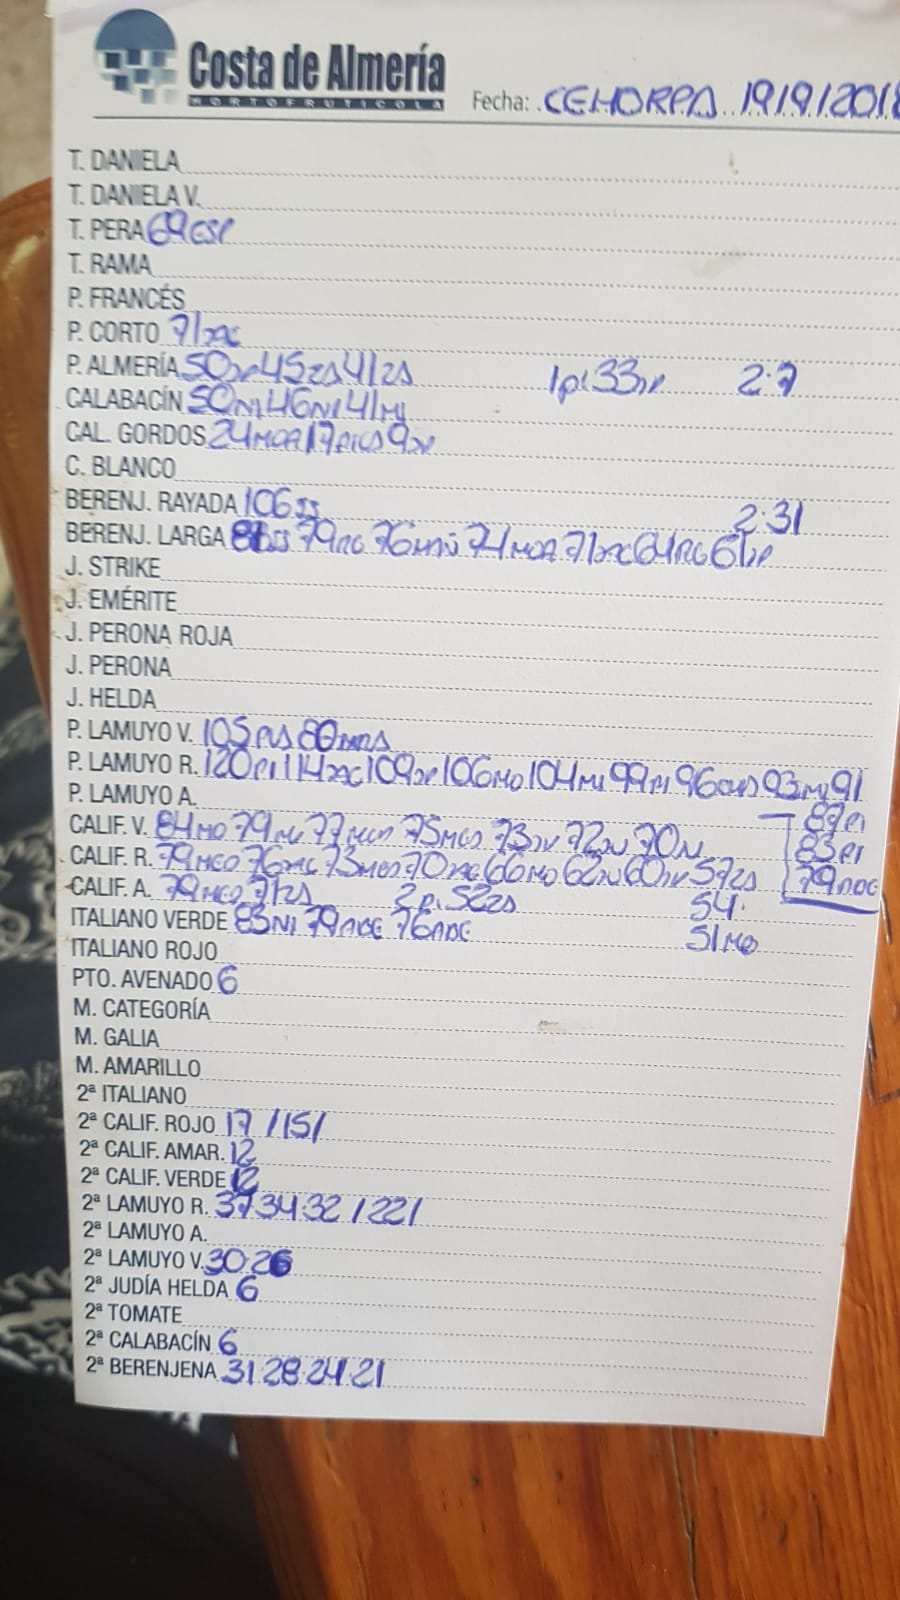 Costa de Almería
HORTOFRUTICOLA
Fecha: CEHORPA 19/9/2018
T. DANIELA
T. DANIELA V.
T. PERA 69ESP
T. RAMA
P. FRANCÉS
P. CORTO 71
P. ALMERÍA 50 45 41 1p. 33 2:7
CALABACÍN 50NI 46NI 41MI
CAL. GORDOS 24MOA 17 9
C. BLANCO
BERENJ. RAYADA 106JJ 2:31
BERENJ. LARGA 79 76 74MOA 71 64 61
J. STRIKE
J. EMÉRITE
J. PERONA ROJA
J. PERONA
J. HELDA
P. LAMUYO V. 105 80
P. LAMUYO R. 120PI 114 109 106MO 104MI 99PI 96 93MI 91
P. LAMUYO A. 89PI
CALIF. V. 84MO 79 77 75MCO 73 72 70 83PI
CALIF. R. 79MCO 76 73MCO 70 66MO 62 60 57 79
CALIF. A. 79MCO 71 2p. 52 54
ITALIANO VERDE 83NI 79 76 51MO
ITALIANO ROJO
PTO. AVENADO 6
M. CATEGORÍA
M. GALIA
M. AMARILLO
2ª ITALIANO
2ª CALIF. ROJO 17 /15/
2ª CALIF. AMAR. 12
2ª CALIF. VERDE 12
2ª LAMUYO R. 37 34 32 /22/
2ª LAMUYO A.
2ª LAMUYO V. 30·26
2ª JUDÍA HELDA 6
2ª TOMATE
2ª CALABACÍN 6
2ª BERENJENA 31·28·24·21